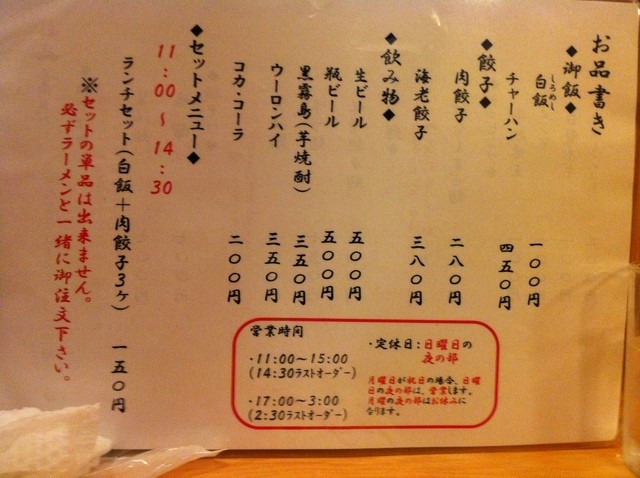 お品書き
◆御飯◆
白飯 一〇〇円
しろめし
チャーハン 四五〇円
◆餃子◆
肉餃子 二八〇円
海老餃子 三八〇円
◆飲み物◆
生ビール 五〇〇円
瓶ビール 五〇〇円
黒霧島(芋焼酎) 三五〇円
ウーロンハイ 三五〇円
コカ・コーラ 二〇〇円
◆セットメニュー◆
11:00～14:30
ランチセット(白飯＋肉餃子3ヶ) 一五〇円
※セットの単品は出来ません。
必ずラーメンと一緒に御注文下さい。
営業時間
・11:00～15:00
(14:30ラストオーダー)
・17:00～3:00
(2:30ラストオーダー)
・定休日:日曜日の
夜の部
月曜日が祝日の場合、日曜
日の夜の部は、営業します。
月曜の夜の部はお休みに
なります。